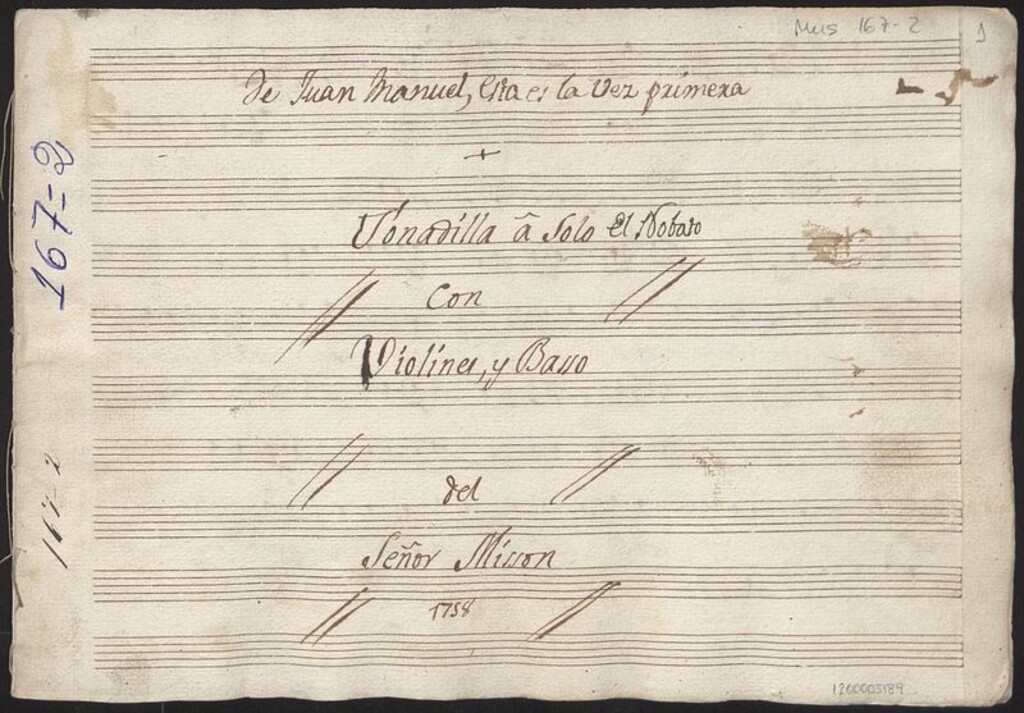 Mus 167-2
1
de Juan Manuel, esta es la Vez primera
167=2
Tonadilla â Solo El Nobato
Con
Violines, y Basso
167-2
del
Señor Misson
1758
1200003189